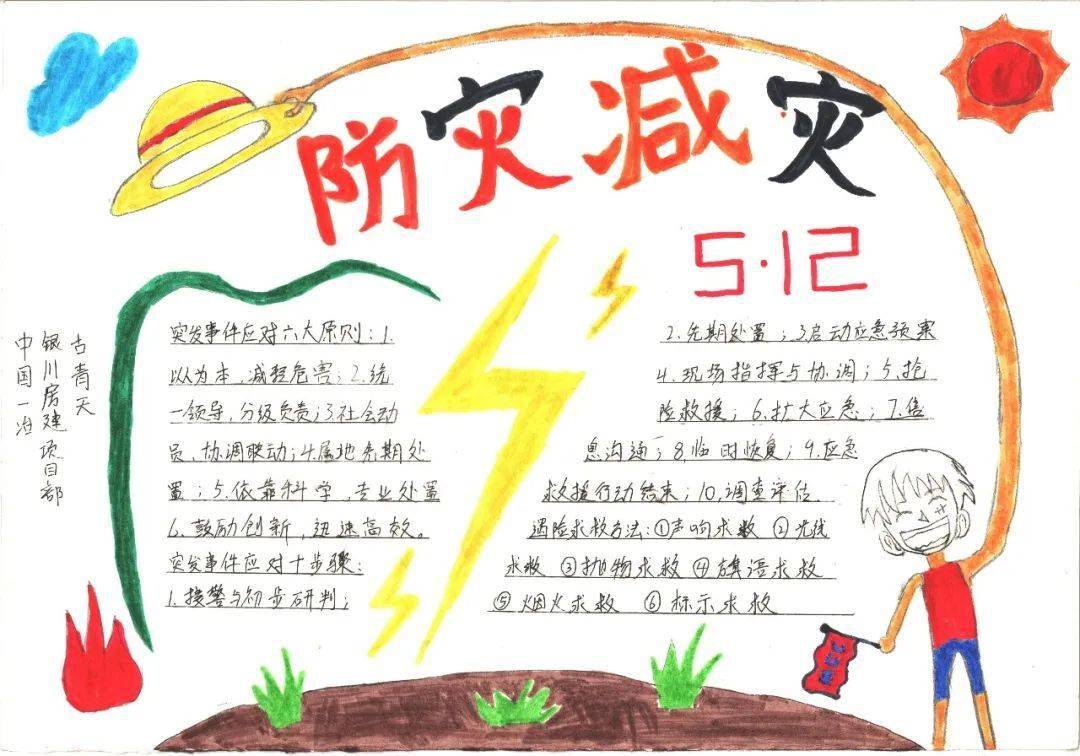 防灾减灾
5·12
古青天
银川房建项目部
中国一冶
突发事件应对六大原则:1.
以人为本,减轻危害;2.统
一领导,分级负责;3.社会动
员、协调联动;4.属地先期处
置;5.依靠科学,专业处置
6.鼓励创新,迅速高效。
突发事件应对十步骤:
1.接警与初步研判;
2.先期处置;3.启动应急预案
4.现场指挥与协调;5.抢
险救援;6.扩大应急;7.信
息沟通;8.临时恢复;9.应急
救援行动结束;10.调查评估.
遇险求救方法:①声响求救 ②光线
求救 ③抛物求救 ④旗语求救
⑤烟火求救 ⑥标示求救